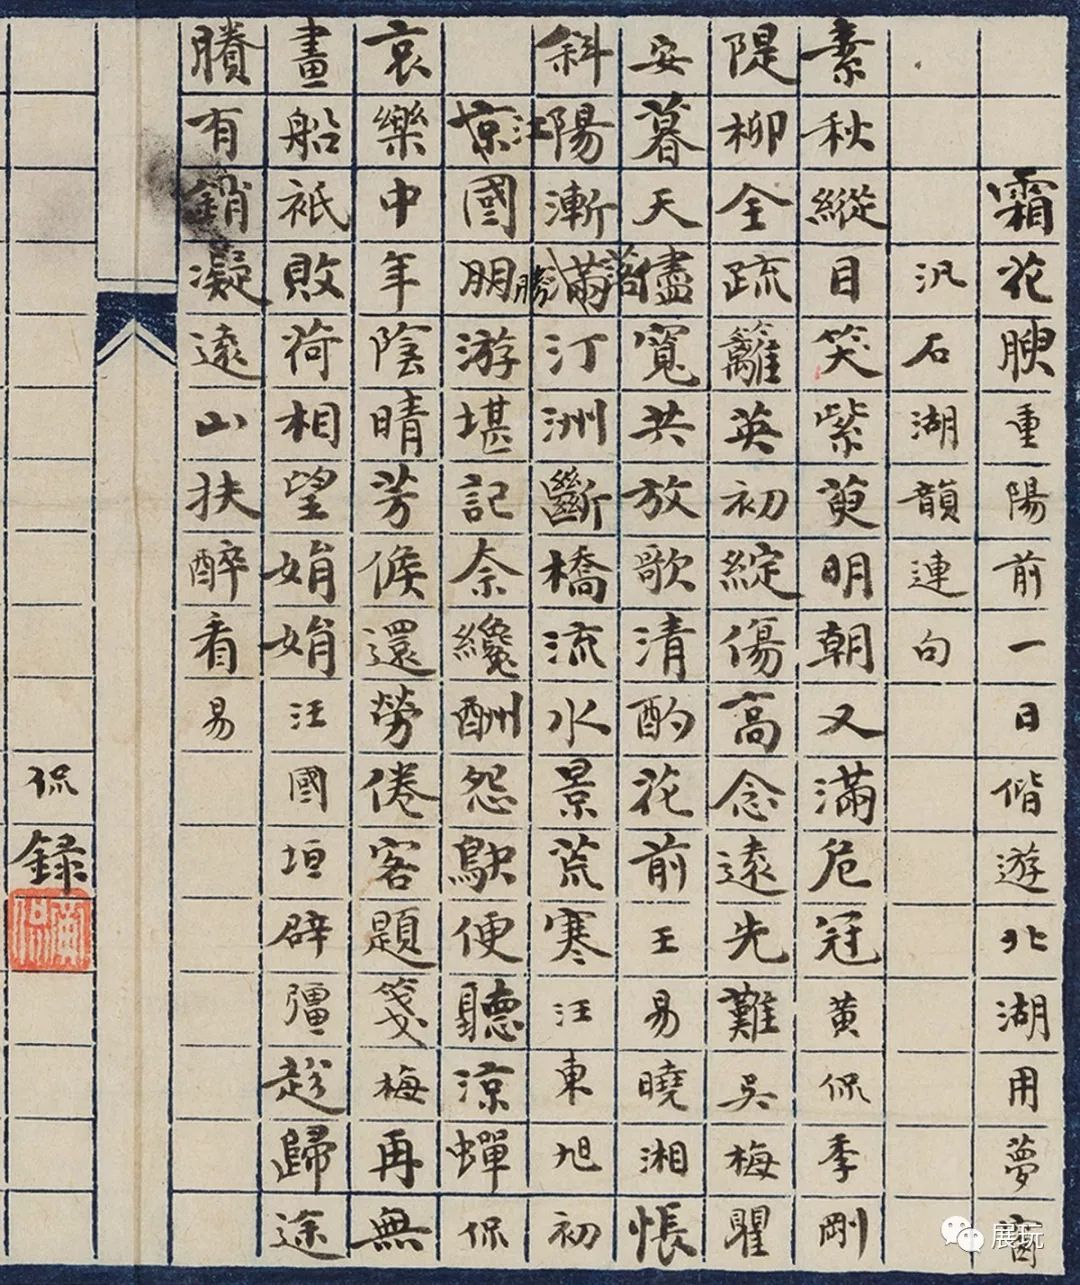 霜花腴重陽前一日偕遊北湖用夢窗
汎石湖韻連句
素秋縱目笑紫萸明朝又滿危冠黃侃季剛
隄柳全疏籬英初綻傷高念遠先難吳梅瞿
安暮天儘寬共放歌清酌花前王易曉湘悵
斜陽漸滿落汀洲斷橋流水景荒寒汪東旭初
京江國朋勝游堪記奈纔酬怨鴃便聽涼蟬侃
哀樂中年陰晴芳候還勞倦客題箋梅再無
畫船衹敗荷相望娟娟汪國垣辟彊趁歸途
賸有銷凝遠山扶醉看易
侃錄
黃侃
展玩